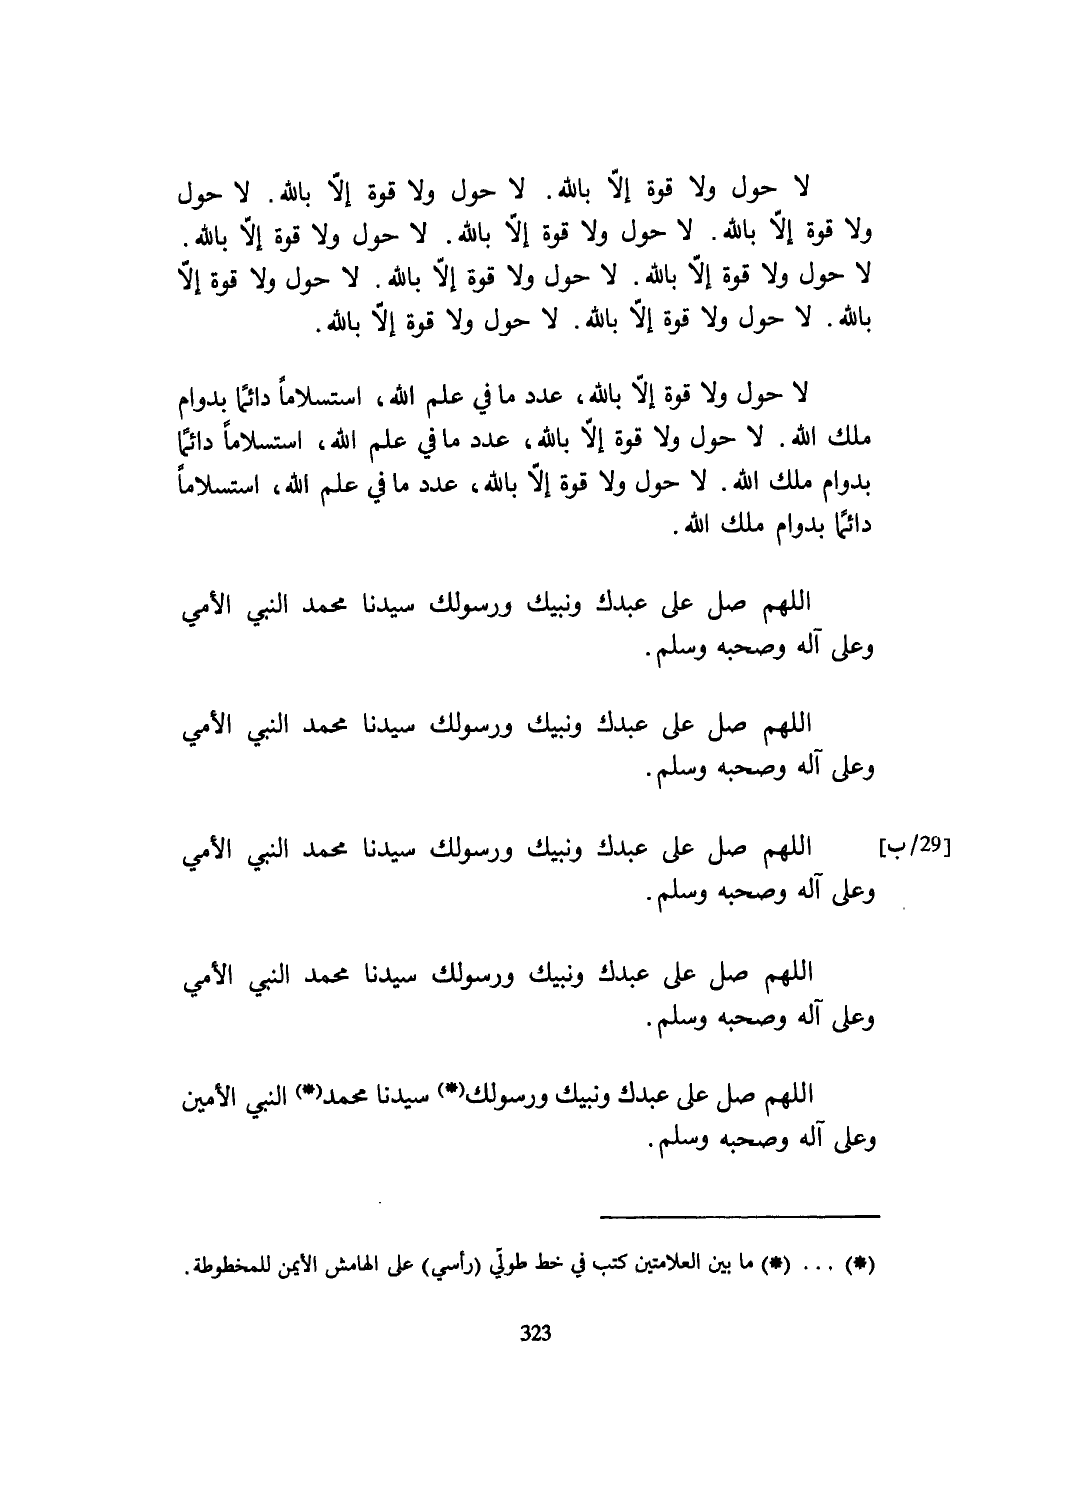 لا حول ولا قوة إلاّ بالله. لا حول ولا قوة إلاّ بالله. لا حول
ولا قوة إلاّ بالله. لا حول ولا قوة إلاّ بالله. لا حول ولا قوة إلاّ بالله.
لا حول ولا قوة إلاّ بالله. لا حول ولا قوة إلاّ بالله. لا حول ولا قوة إلاّ
بالله. لا حول ولا قوة إلاّ بالله. لا حول ولا قوة إلاّ بالله.
لا حول ولا قوة إلاّ بالله، عدد ما في علم الله، استسلاماً دائمًا بدوام
ملك الله. لا حول ولا قوة إلاّ بالله، عدد ما في علم الله، استسلاماً دائمًا
بدوام ملك الله. لا حول ولا قوة إلاّ بالله، عدد ما في علم الله، استسلاماً
دائمًا بدوام ملك الله.
اللهم صل على عبدك ونبيك ورسولك سيدنا محمد النبي الأمي
وعلى آله وصحبه وسلم.
اللهم صل على عبدك ونبيك ورسولك سيدنا محمد النبي الأمي
وعلى آله وصحبه وسلم.
[29/ب] اللهم صل على عبدك ونبيك ورسولك سيدنا محمد النبي الأمي
وعلى آله وصحبه وسلم.
اللهم صل على عبدك ونبيك ورسولك سيدنا محمد النبي الأمي
وعلى آله وصحبه وسلم.
اللهم صل على عبدك ونبيك ورسولك(*) سيدنا محمد(*) النبي الأمين
وعلى آله وصحبه وسلم.
(*) ... (*) ما بين العلامتين كتب في خط طوليّ (رأسي) على الهامش الأيمن للمخطوطة.
323